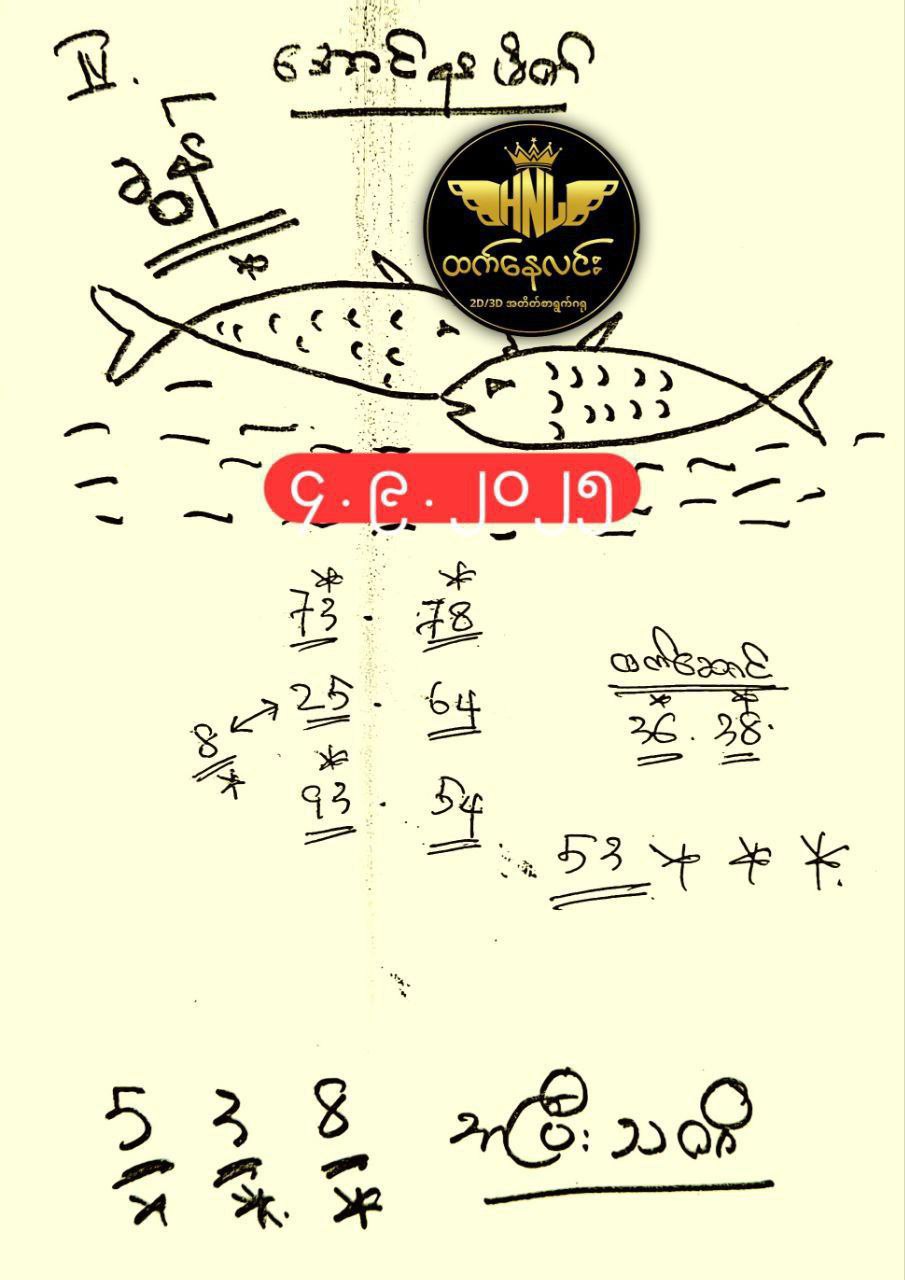 IV. အောင်ရစဖိတ်
HNL
ထက်နေလင်း
2D/3D အတိတ်စာရွက်ဂရု
၄.၉.၂၀၂၅
73 . 78
25 . 64
8
93 . 54
ထက်အောင်
36 . 38
53
5 3 8